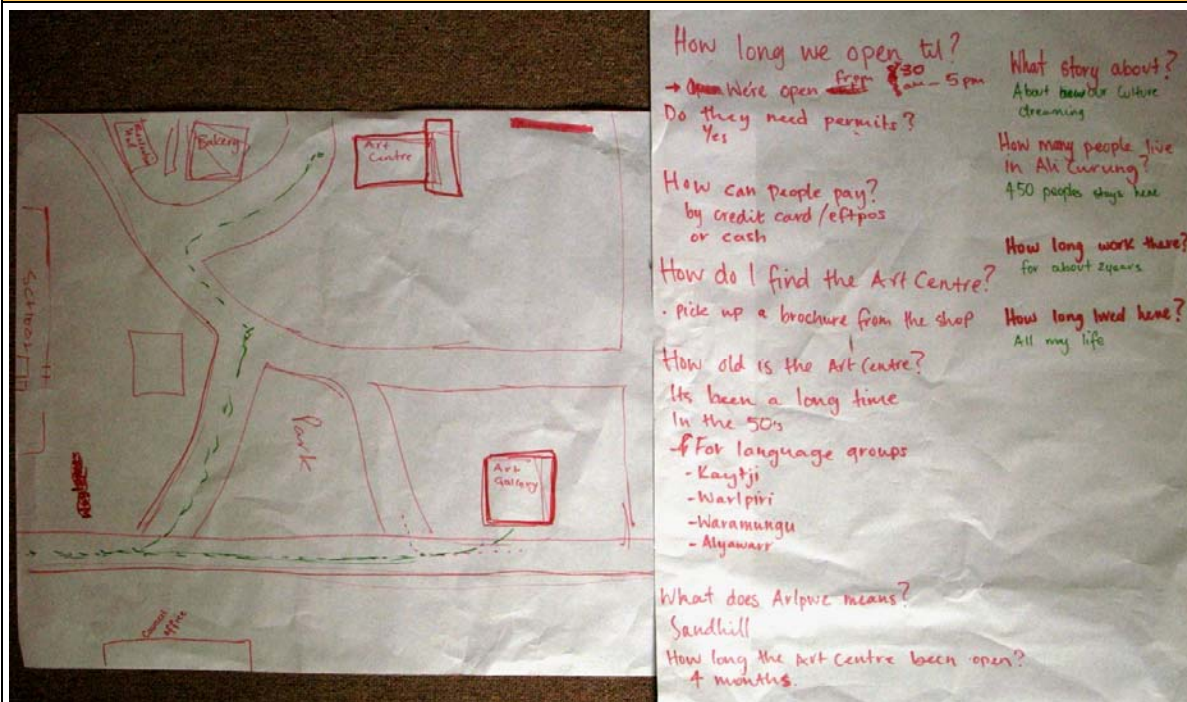 Bakery
Art
Centre
SCHOOL
Park
Art
Gallery
Council
office
How long we open til?
→ Open We're open from 8:30
am - 5 pm
Do they need permits?
Yes
How can people pay?
by credit card/eftpos
or cash
How do I find the Art Centre?
. Pick up a brochure from the shop
How old is the Art Centre?
Its been a long time
In the 50's
For language groups
- Kaytji
- Warlpiri
- Waramungu
- Alyawarr
What does Arlpwe means?
Sandhill
How long the Art Centre been open?
4 months.
What story about?
About our Culture
dreaming
How many people live
in Ali Curung?
450 peoples stays here
How long work there?
for about 2years
How long lived here?
All my life